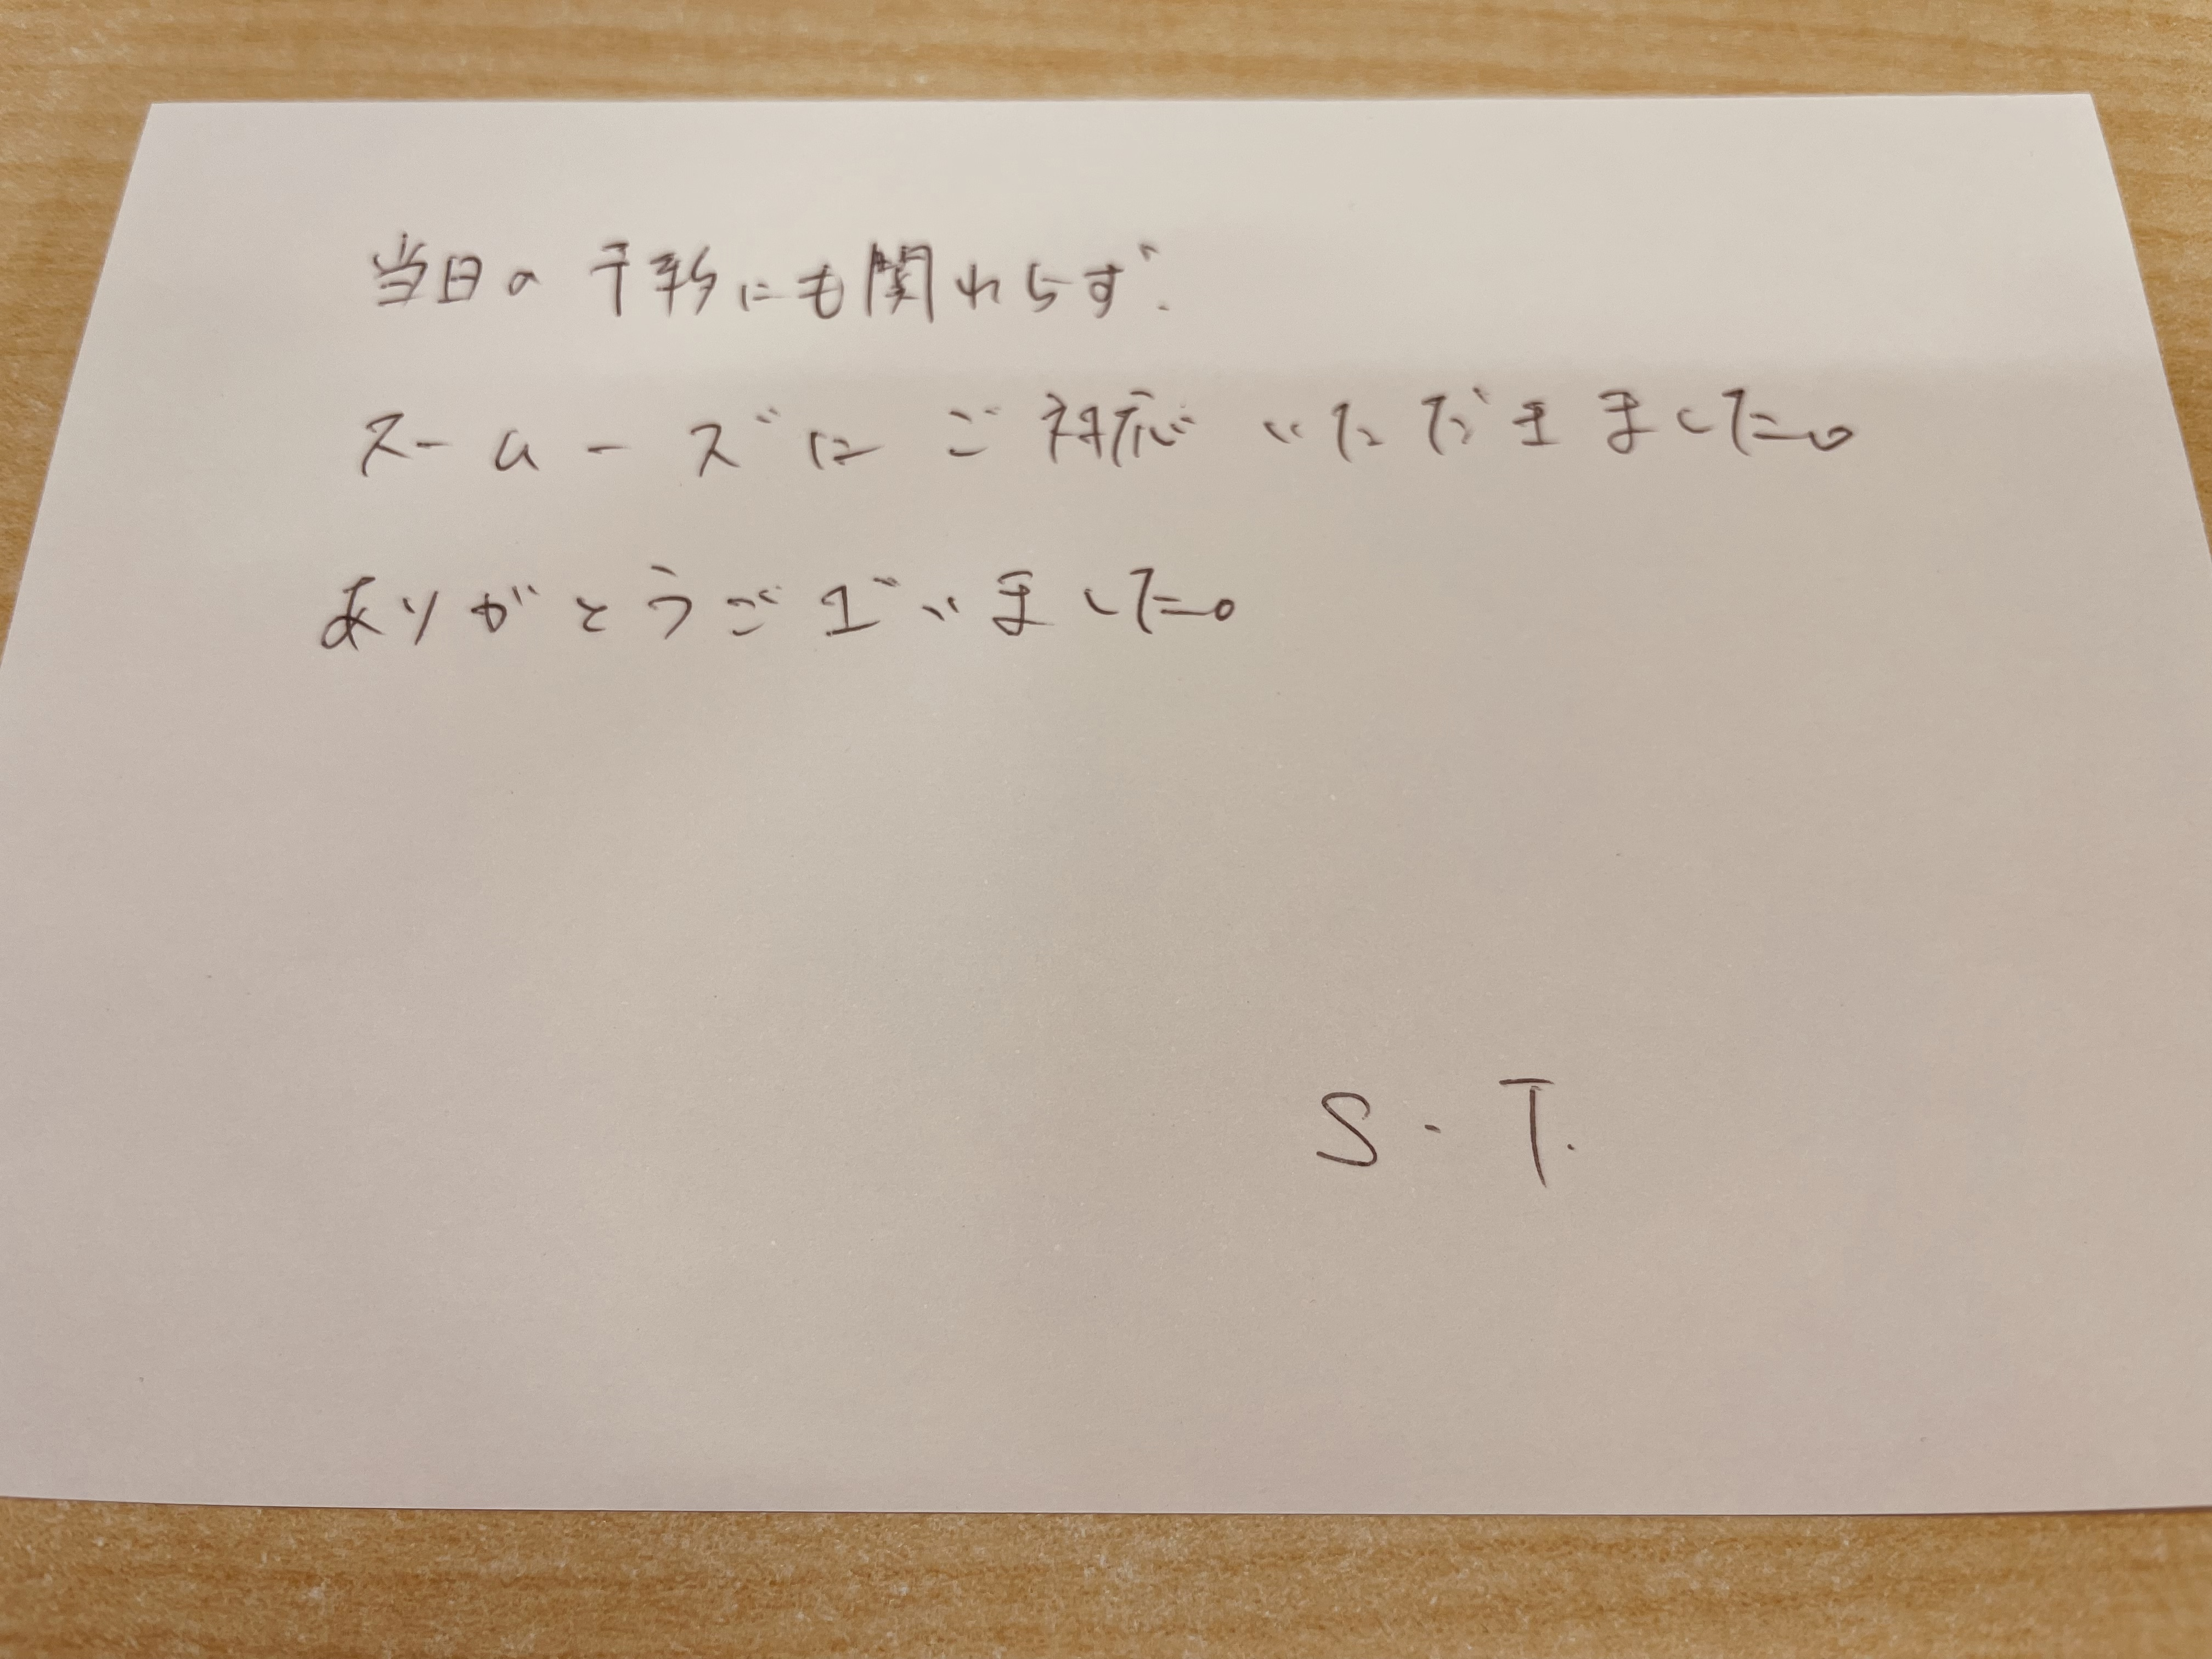 当日の予約にも関わらず、
スームーズにご対応いただきました。
ありがとうございました。
S・T.